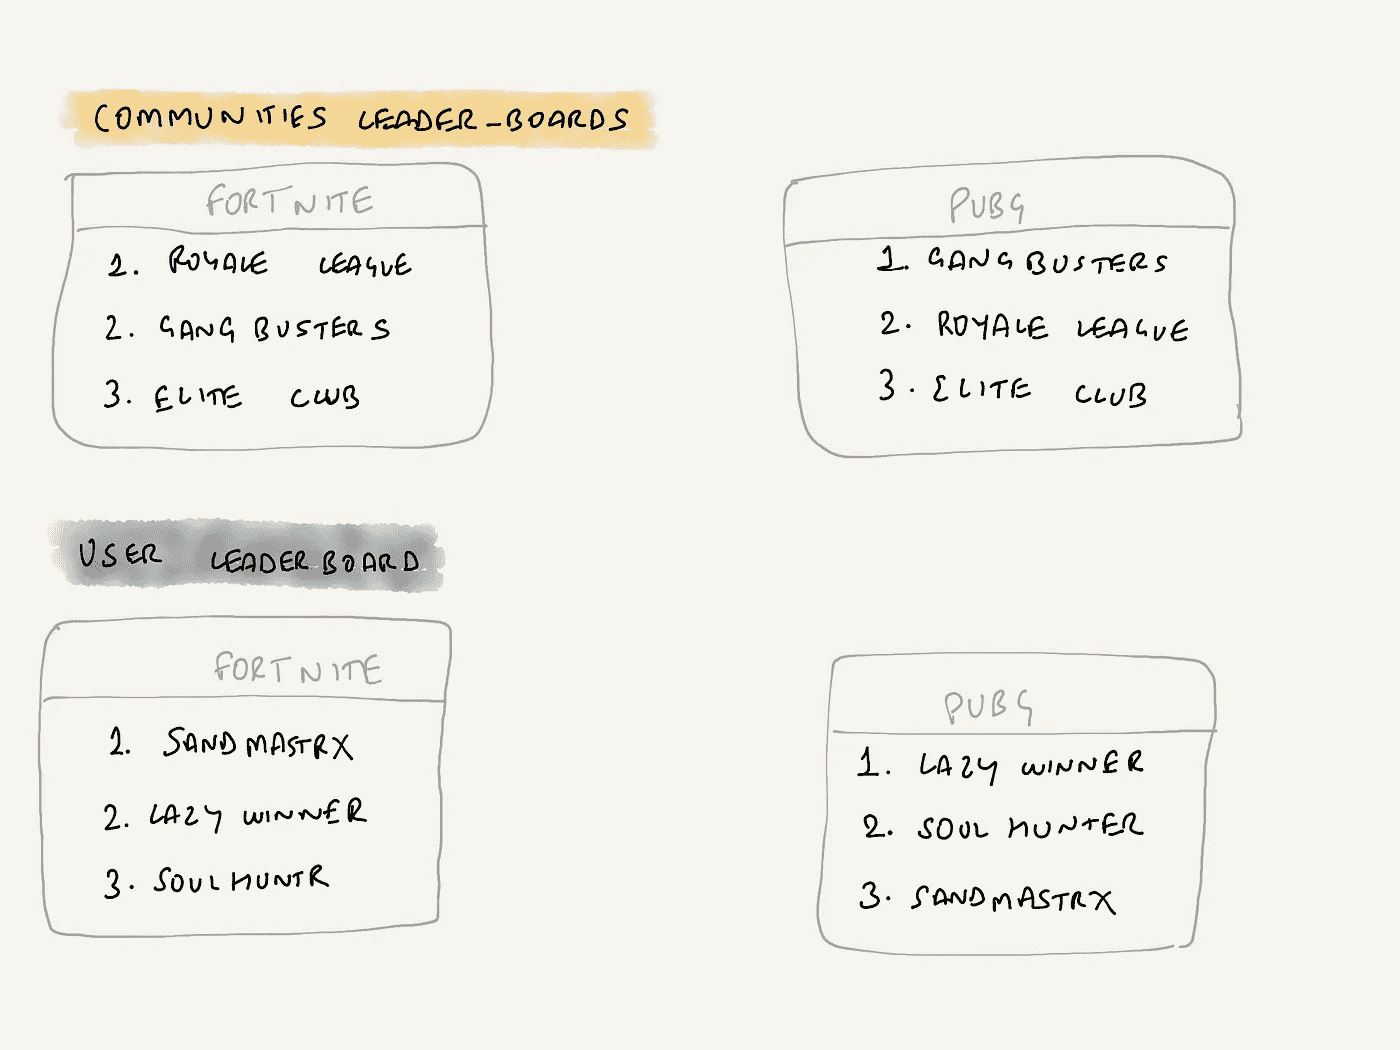 COMMUNITIES LEADER-BOARDS
FORTNITE
1. ROYALE LEAGUE
2. GANG BUSTERS
3. ELITE CLUB
PUBG
1. GANG BUSTERS
2. ROYALE LEAGUE
3. ELITE CLUB
USER LEADER BOARD
FORTNITE
1. SANDMASTRX
2. LAZY WINNER
3. SOULHUNTR
PUBG
1. LAZY WINNER
2. SOUL HUNTER
3. SANDMASTRX